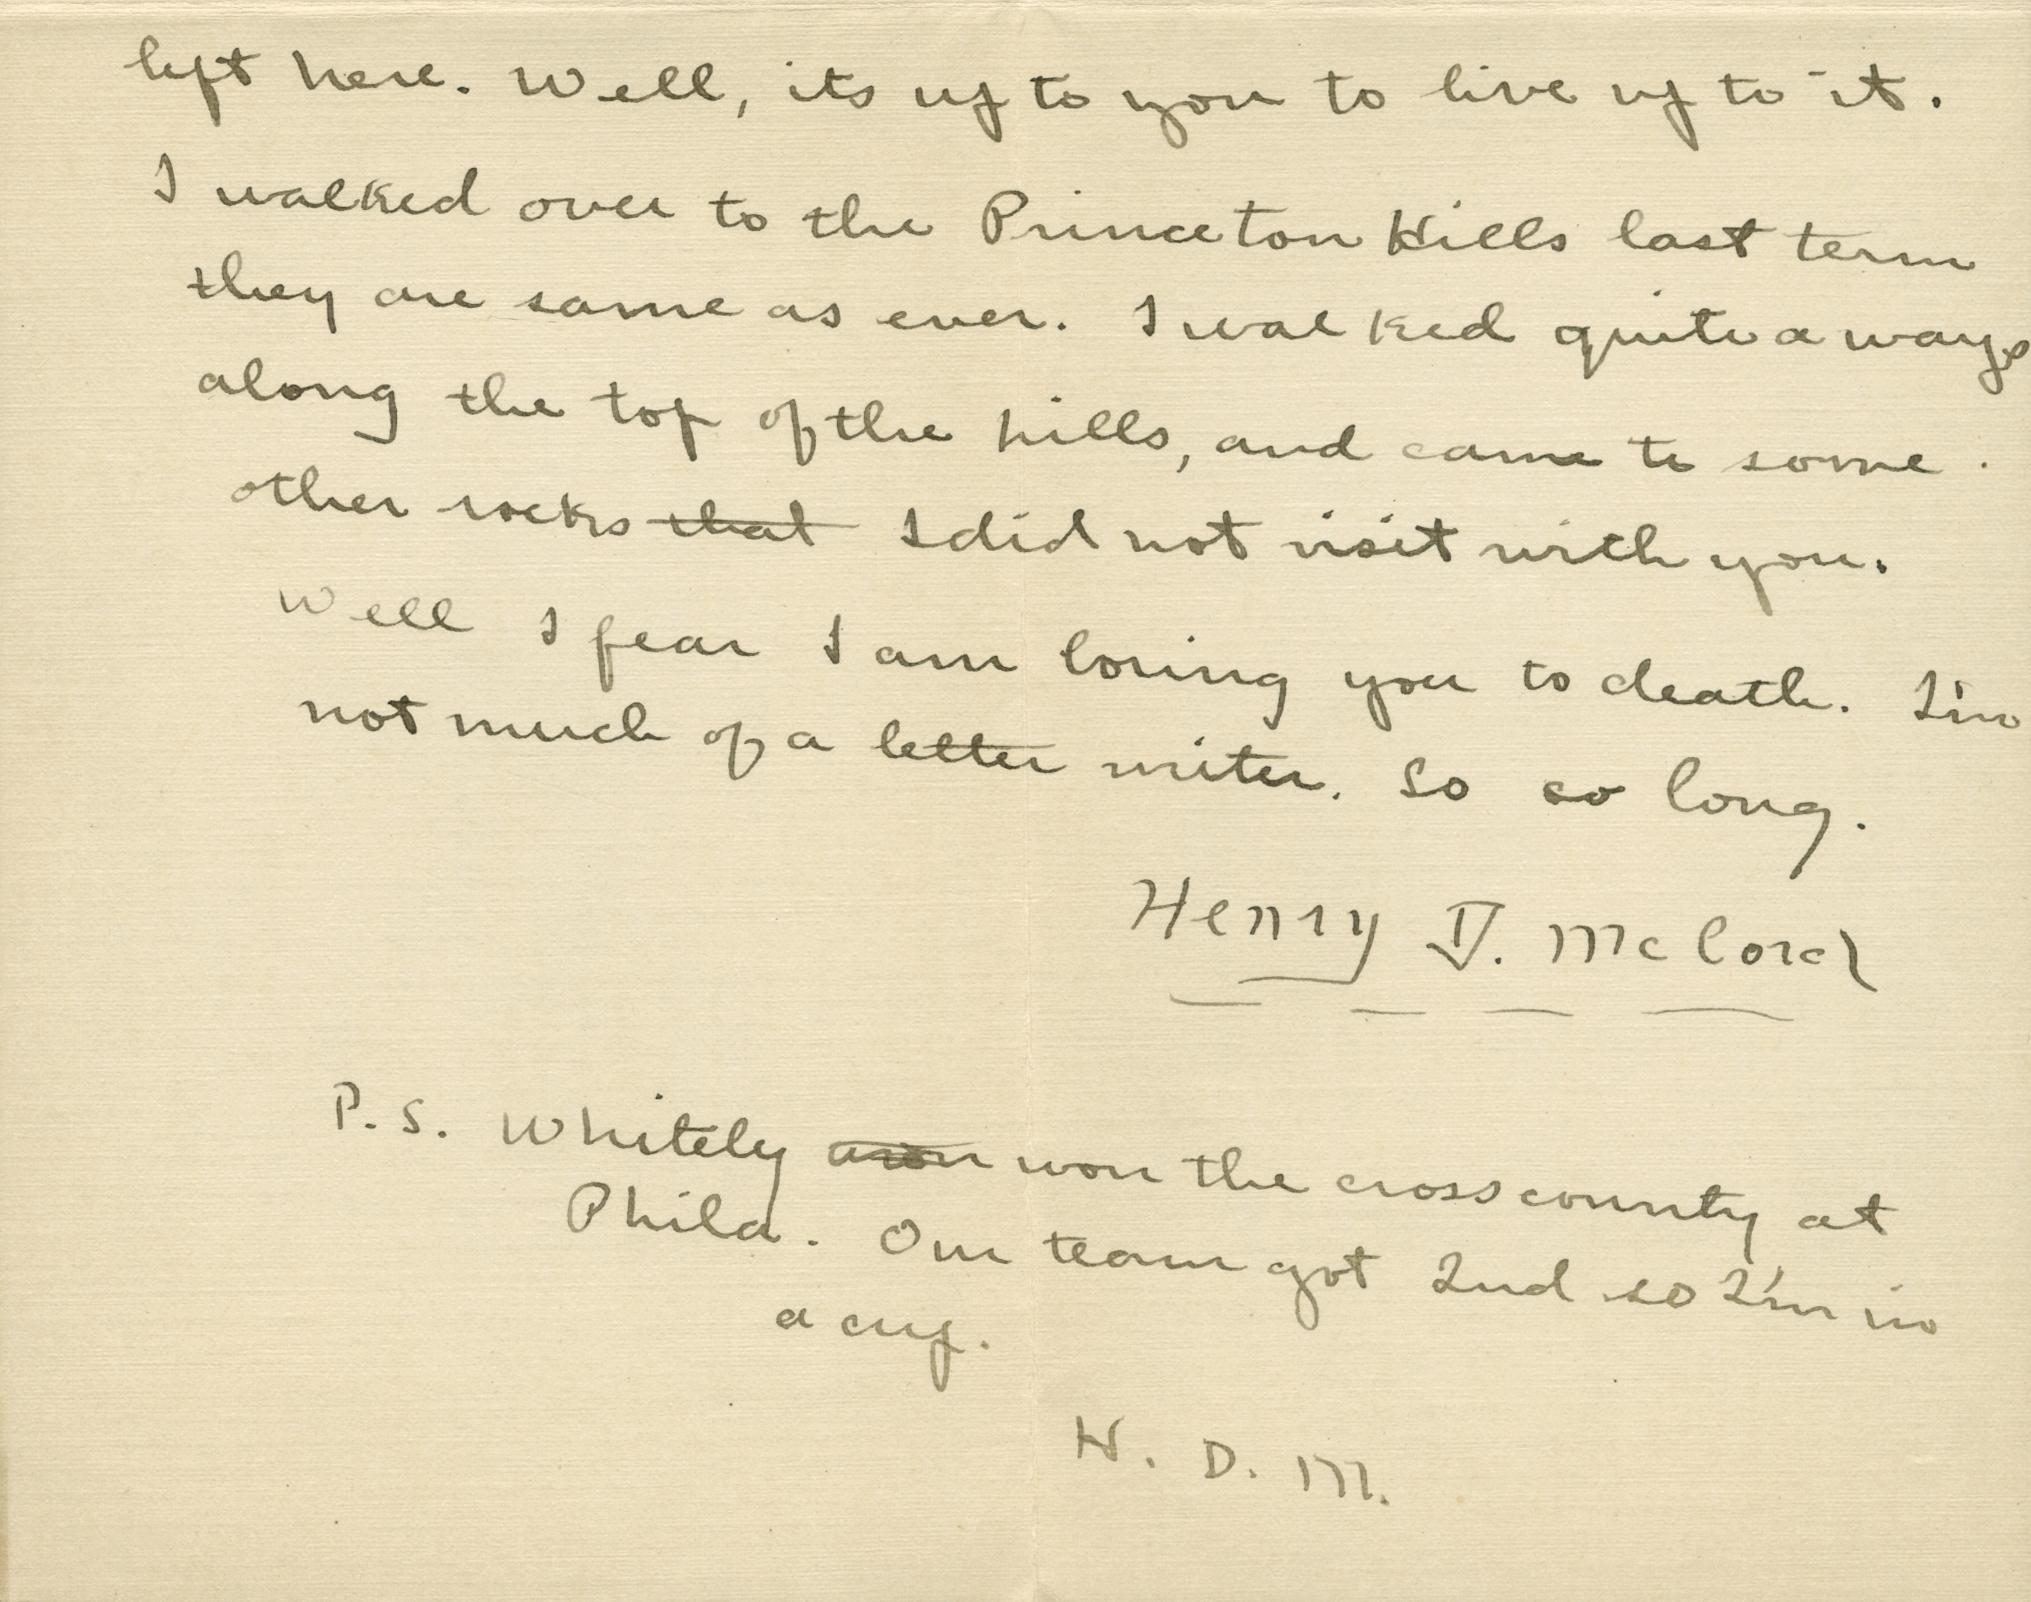 left here. Well, its up to you to live up to it.
I walked over to the Princeton Hills last term
they are same as ever. I walked quite a ways
along the top of the hills, and came to some
other rocks that I did not visit with you.
Well I fear I am boring you to death. I'm
not much of a letter writer. So so long.
Henry D. McCord
P.S. Whitely won the cross county at
Phila. Our team got 2nd so I'm in
a cup.
H. D. M.